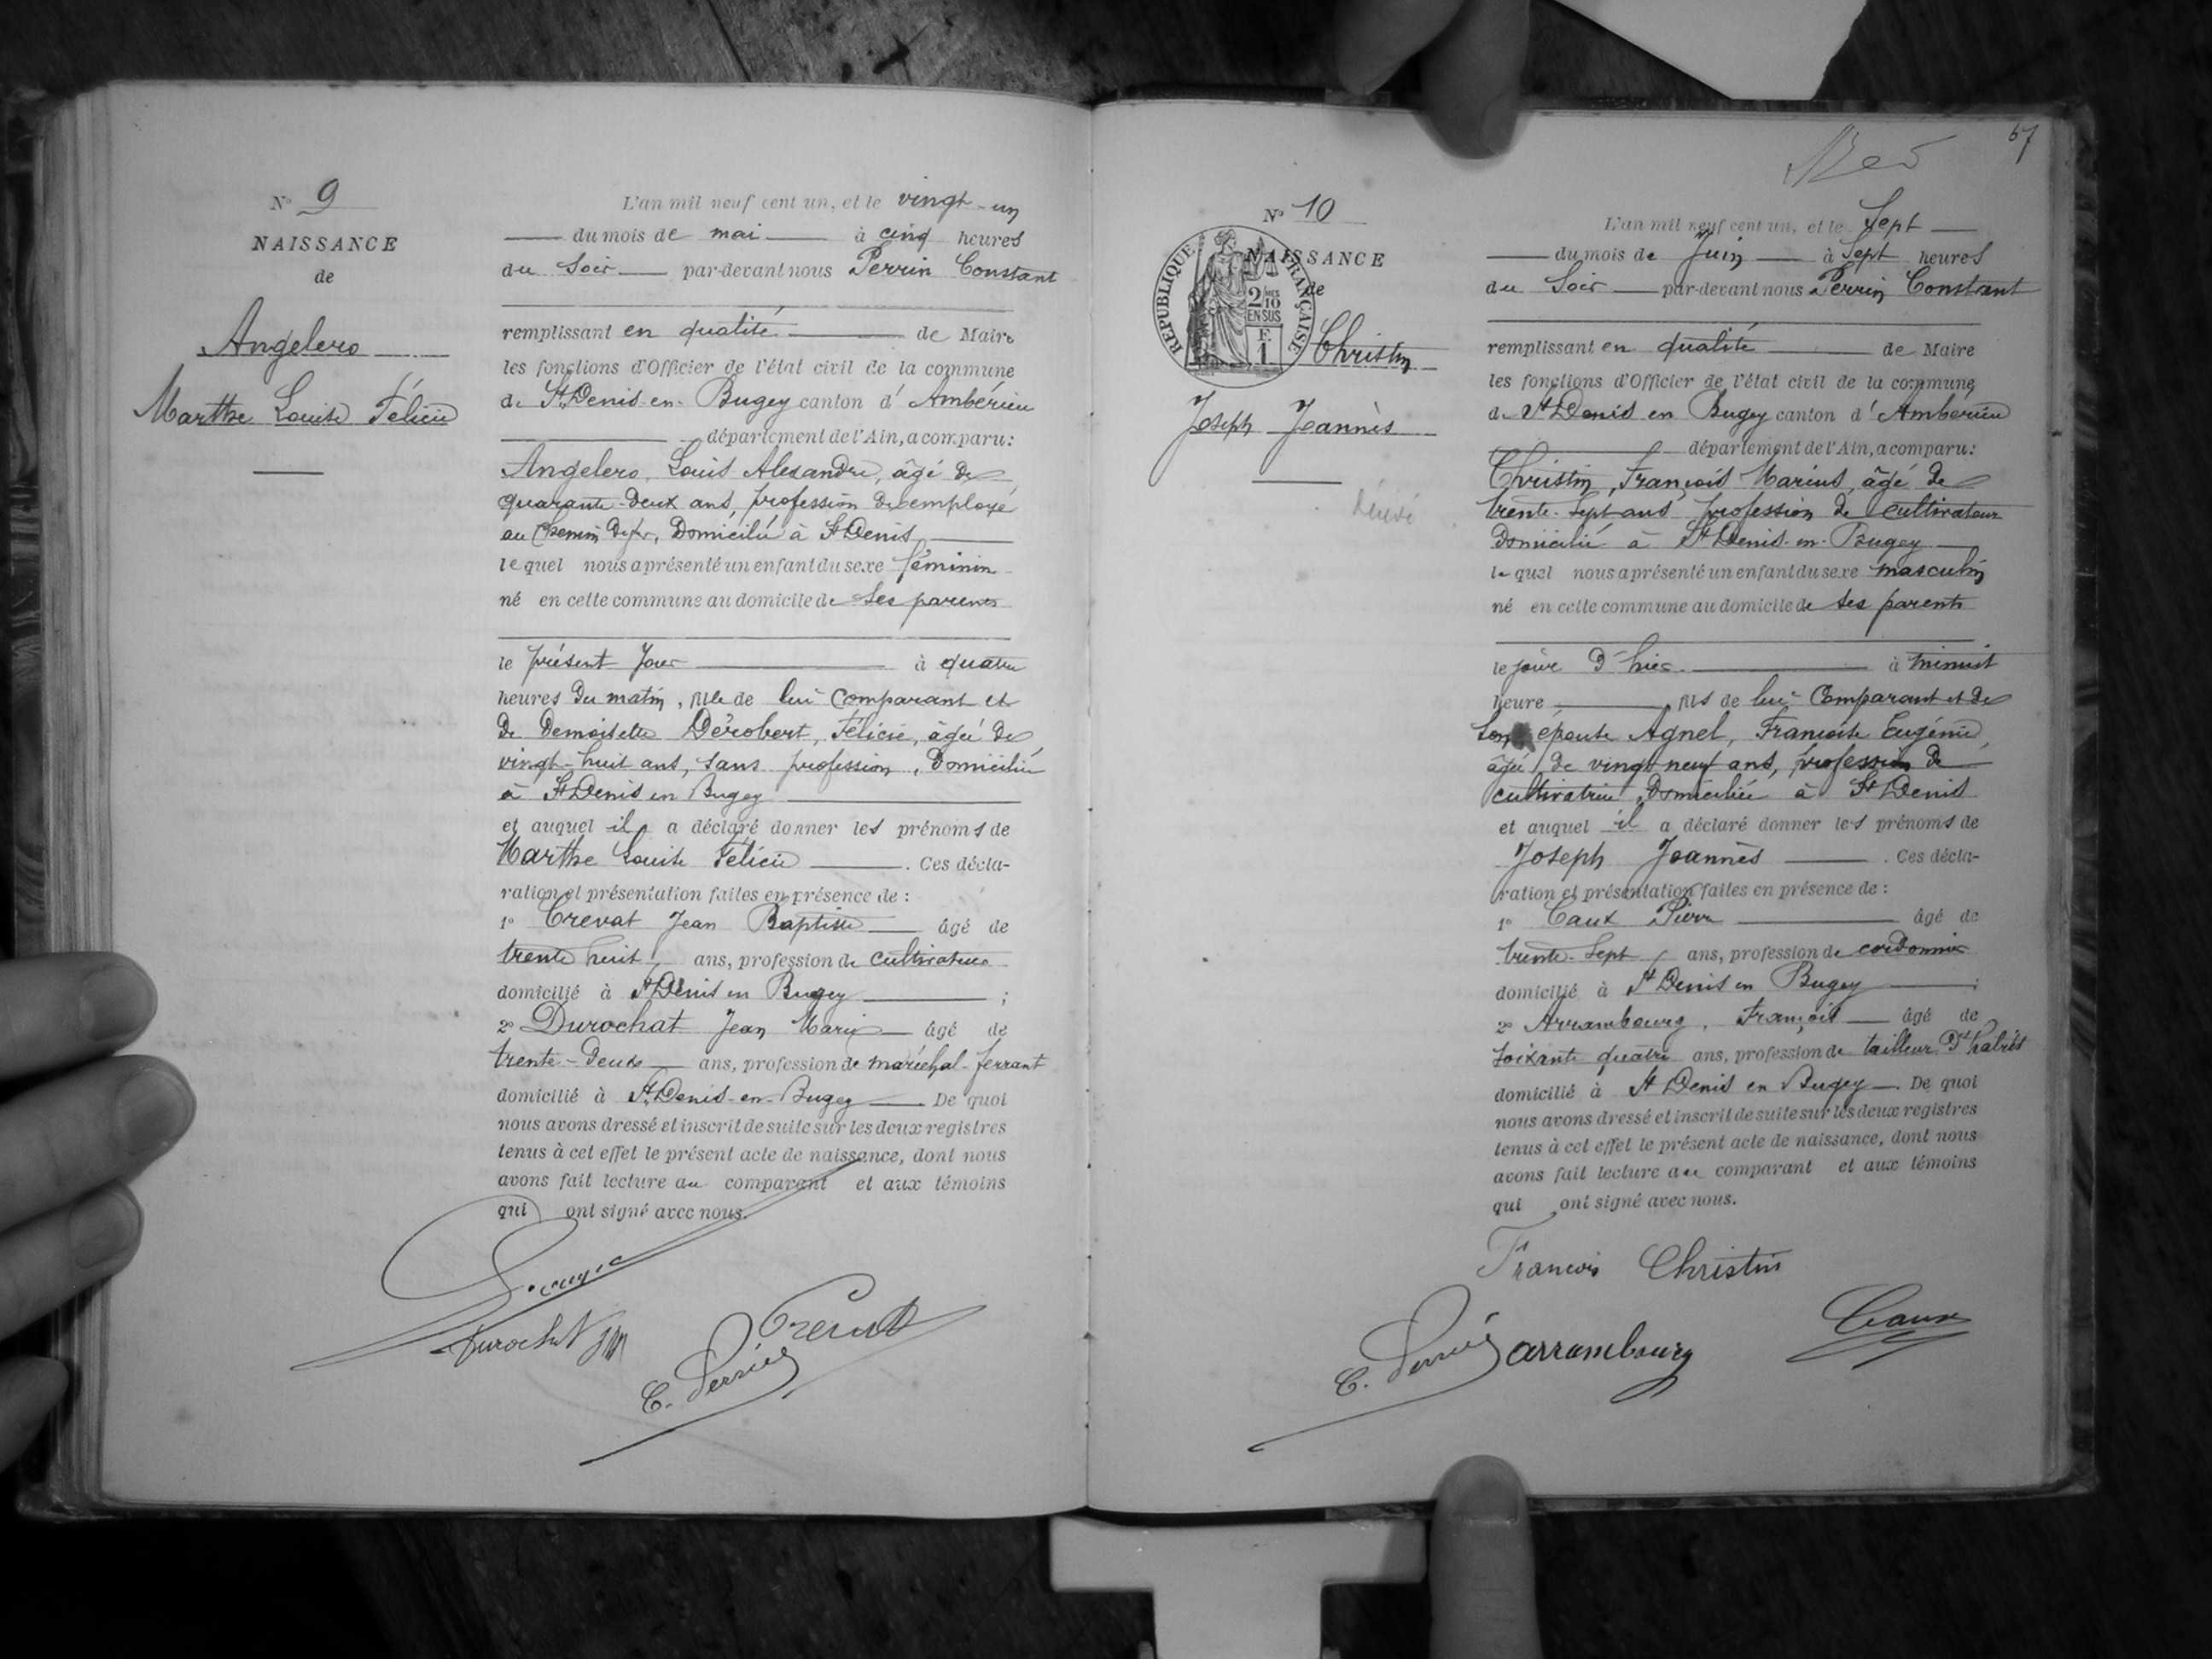 N° 9
NAISSANCE
de
Angelero
Marthe Louise Félicie
L'an mil neuf cent un, et le vingt-un
du mois de mai à cinq heures
du soir par-devant nous Perrin Constant
remplissant en qualité de Maire
les fonctions d'Officier de l'état civil de la commune
de St Denis-en-Bugey canton d'Ambérieu
département de l'Ain, a comparu:
Angelero, Louis Alexandre, âgé de
quarante-deux ans, profession de employé
au chemin de fer, domicilié à St Denis
lequel nous a présenté un enfant du sexe féminin
né en cette commune au domicile de ses parents
le présent jour à quatre
heures du matin, fille de lui comparant et
de demoiselle Dérobert, Félicie, âgée de
vingt-huit ans, sans profession, domiciliée
à St Denis en Bugey
et auquel il a déclaré donner les prénoms de
Marthe Louise Félicie. Ces décla-
ration et présentation faites en présence de :
1° Crevat Jean Baptiste âgé de
trente huit ans, profession de cultivateur
domicilié à St Denis en Bugey ;
2° Durochat Jean Marie âgé de
trente-deux ans, profession de maréchal-ferrant
domicilié à St Denis-en-Bugey De quoi
nous avons dressé et inscrit de suite sur les deux registres
tenus à cet effet le présent acte de naissance, dont nous
avons fait lecture au comparant et aux témoins
qui ont signé avec nous.
Durochat JM
Crevat
C. Perrin
57
N° 10
NAISSANCE
de
RÉPUBLIQUE FRANÇAISE
2/10
EN SUS
F.
1
Christin
Joseph Joannès
L'an mil neuf cent un, et le sept
du mois de Juin à sept heures
du soir par-devant nous Perrin Constant
remplissant en qualité de Maire
les fonctions d'Officier de l'état civil de la commune
de St Denis en Bugey canton d'Ambérieu
département de l'Ain, a comparu:
Christin, François Marius, âgé de
trente-sept ans profession de cultivateur
domicilié à St Denis-en-Bugey
lequel nous a présenté un enfant du sexe masculin
né en cette commune au domicile de ses parents
le jour d'hier à minuit
heure, fils de lui comparant et de
son épouse Agnel, Françoise Eugénie,
âgée de vingt neuf ans, profession de
cultivatrice, domiciliée à St Denis
et auquel il a déclaré donner les prénoms de
Joseph Joannès. Ces décla-
ration et présentation faites en présence de :
1° Caux Pierre âgé de
trente-sept ans, profession de cordonnier
domicilié à St Denis en Bugey ;
2° Arrambourg, François âgé de
soixante quatre ans, profession de tailleur d'habits
domicilié à St Denis en Bugey. De quoi
nous avons dressé et inscrit de suite sur les deux registres
tenus à cet effet le présent acte de naissance, dont nous
avons fait lecture au comparant et aux témoins
qui ont signé avec nous.
François Christin
C. Perrin arrambourg Caux